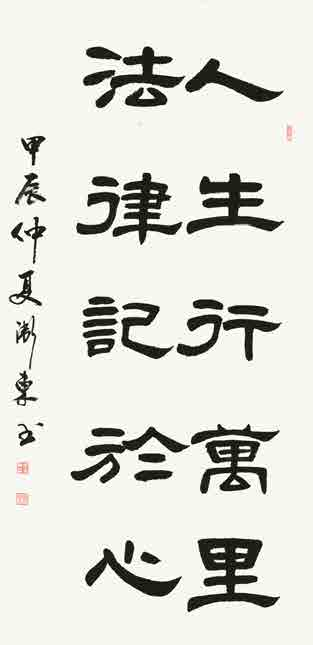 人生行萬里
法律記於心
甲辰仲夏澍東书